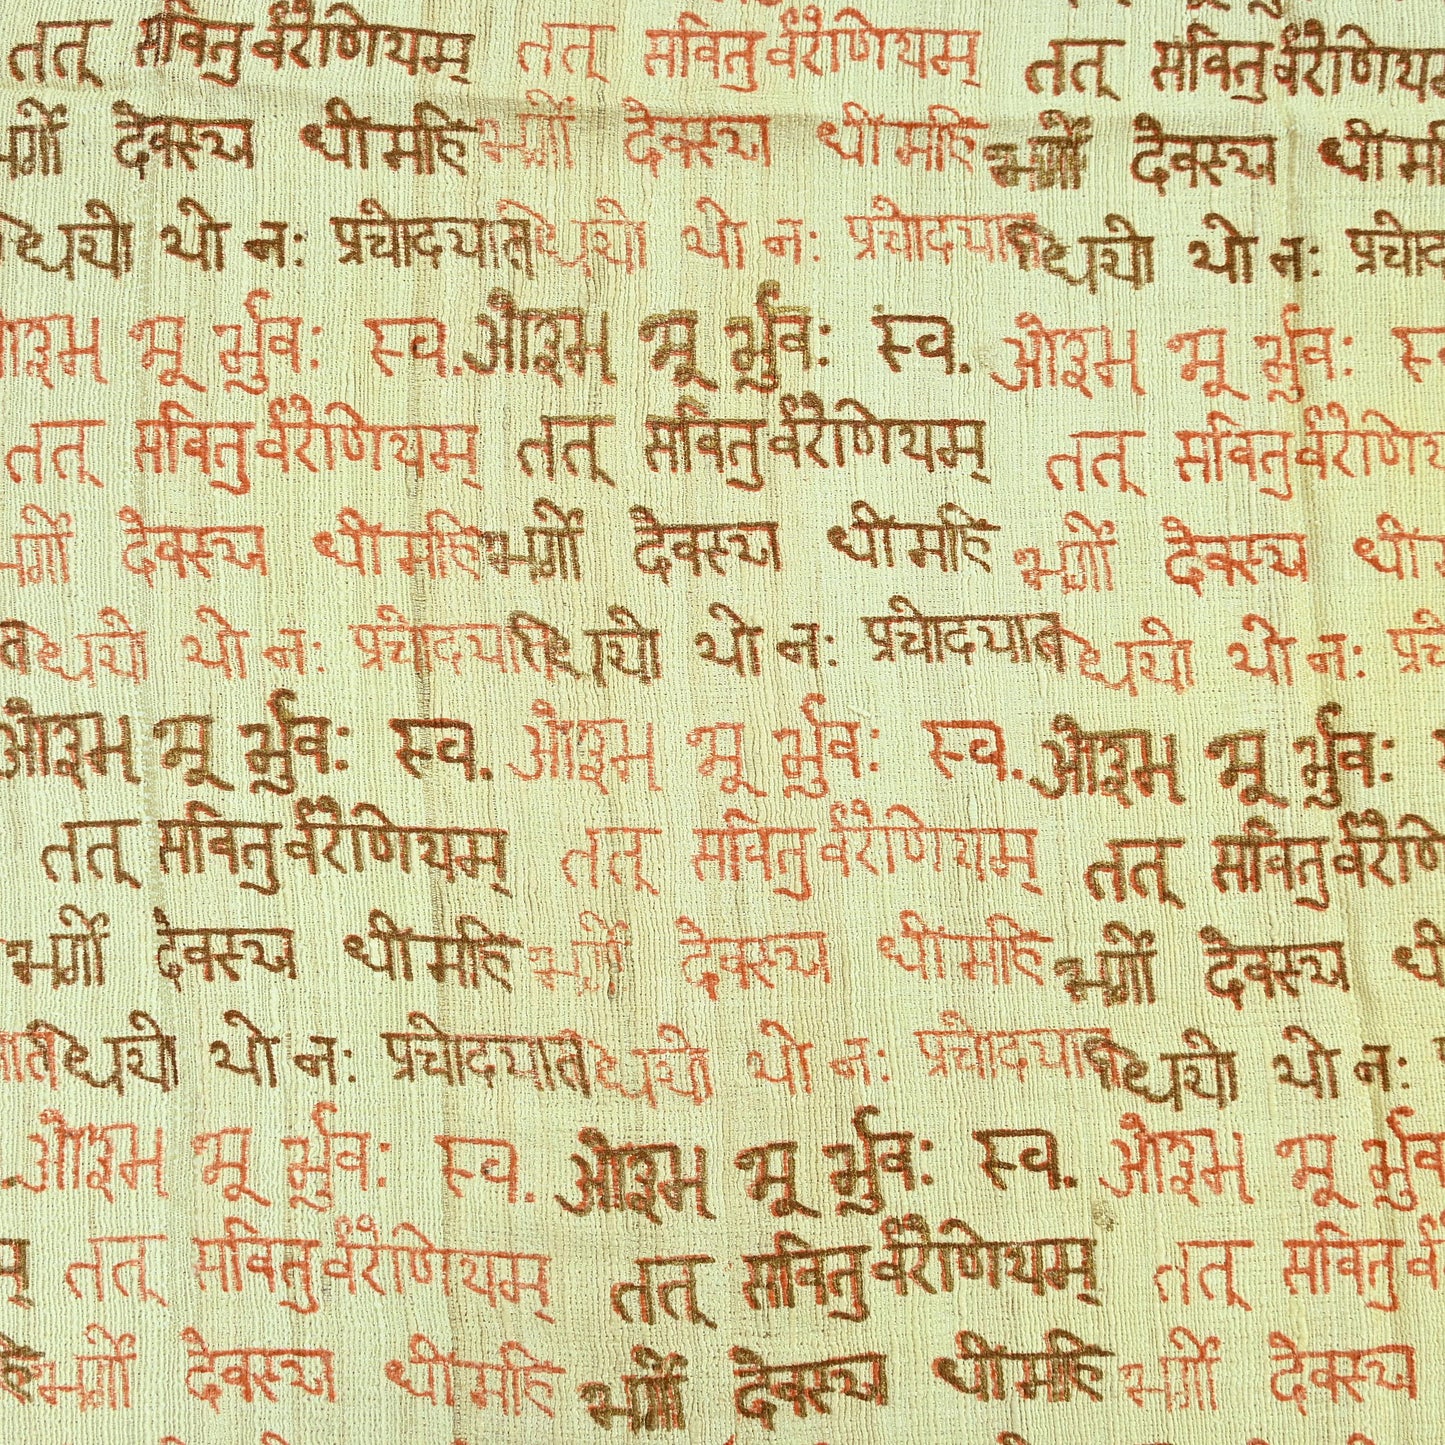 तत् सवितुर्वरेणियम् तत् सवितुर्वरेणियम् तत् सवितुर्वरेणियम्
भर्गो देवस्य धीमहि भर्गो देवस्य धीमहि भर्गो देवस्य धीमहि
धियो यो नः प्रचोदयात धियो यो नः प्रचोदयात धियो यो नः प्रचोद
ओ३म भू र्भुवः स्व. ओ३म भू र्भुवः स्व. ओ३म भू र्भुवः स्व
तत् सवितुर्वरेणियम् तत् सवितुर्वरेणियम् तत् सवितुर्वरेणिय
भर्गो देवस्य धीमहि भर्गो देवस्य धीमहि भर्गो देवस्य धी
त धियो यो नः प्रचोदयात धियो यो नः प्रचोदयात धियो यो नः प्रचो
ओ३म भू र्भुवः स्व. ओ३म भू र्भुवः स्व. ओ३म भू र्भुवः
तत् सवितुर्वरेणियम् तत् सवितुर्वरेणियम् तत् सवितुर्वरेणि
भर्गो देवस्य धीमहि भर्गो देवस्य धीमहि भर्गो देवस्य धी
यात धियो यो नः प्रचोदयात धियो यो नः प्रचोदयात धियो यो नः
ओ३म भू र्भुवः स्व. ओ३म भू र्भुवः स्व. ओ३म भू र्भुव
म् तत् सवितुर्वरेणियम् तत् सवितुर्वरेणियम् तत् सवितुर्व
हि भर्गो देवस्य धीमहि भर्गो देवस्य धीमहि भर्गो देवस्य